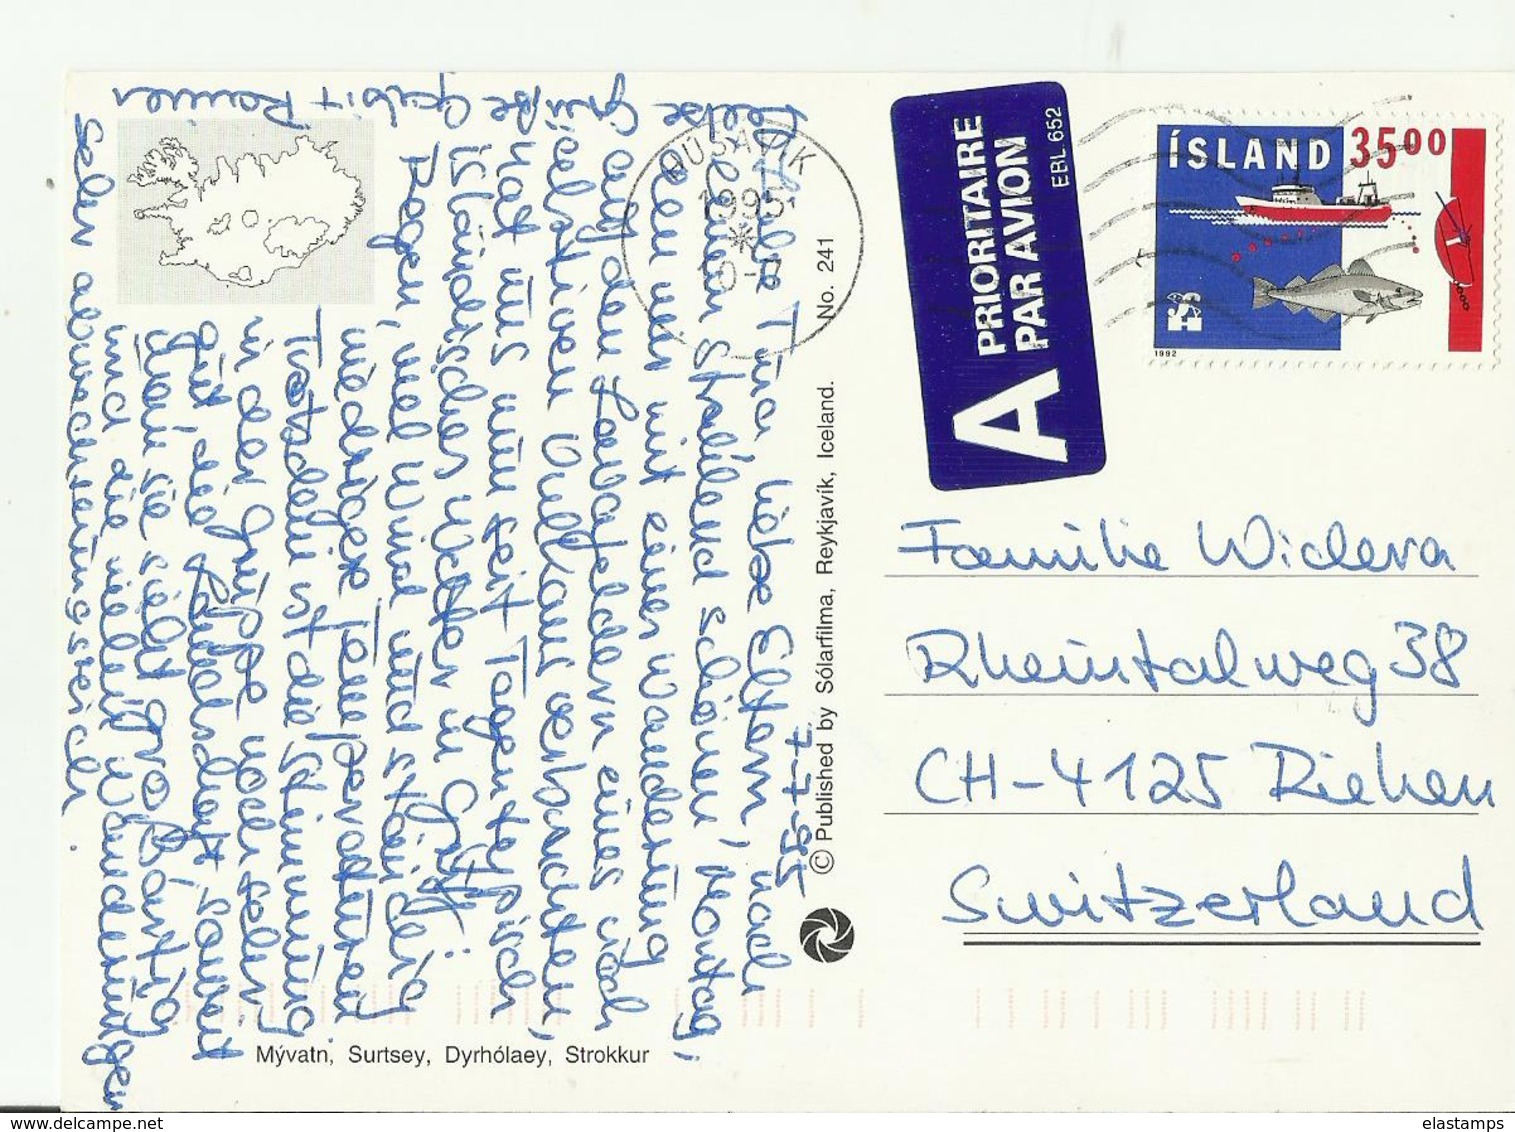 7-7-95
Tina, liebe Eltern, nach
strahlend schönen Montag,
den wir mit einer Wanderung
auf den Lavafeldern eines noch
aktiven Vulkans verbrachten,
hat uns nun seit Tagen typisch
isländisches Wetter im Griff:
Regen, viel Wind und ständig
niedrige Temperaturen.
Trotzdem ist die Stimmung
in der Gruppe noch sehr
gut und die Landschaft soweit
man sie sieht großartig
und die vielen Wanderungen
sehr abwechslungsreich.
Grüße Gabi + Rainer
HÚSAVÍK
1995
10-7
© Published by Sólarfilma, Reykjavík, Iceland. No. 241
Mývatn, Surtsey, Dyrhólaey, Strokkur
A PRIORITAIRE
PAR AVION
EBL 652
ÍSLAND 3500
1992
Familie Widera
Rheintalweg 38
CH-4125 Riehen
Switzerland
elastamps